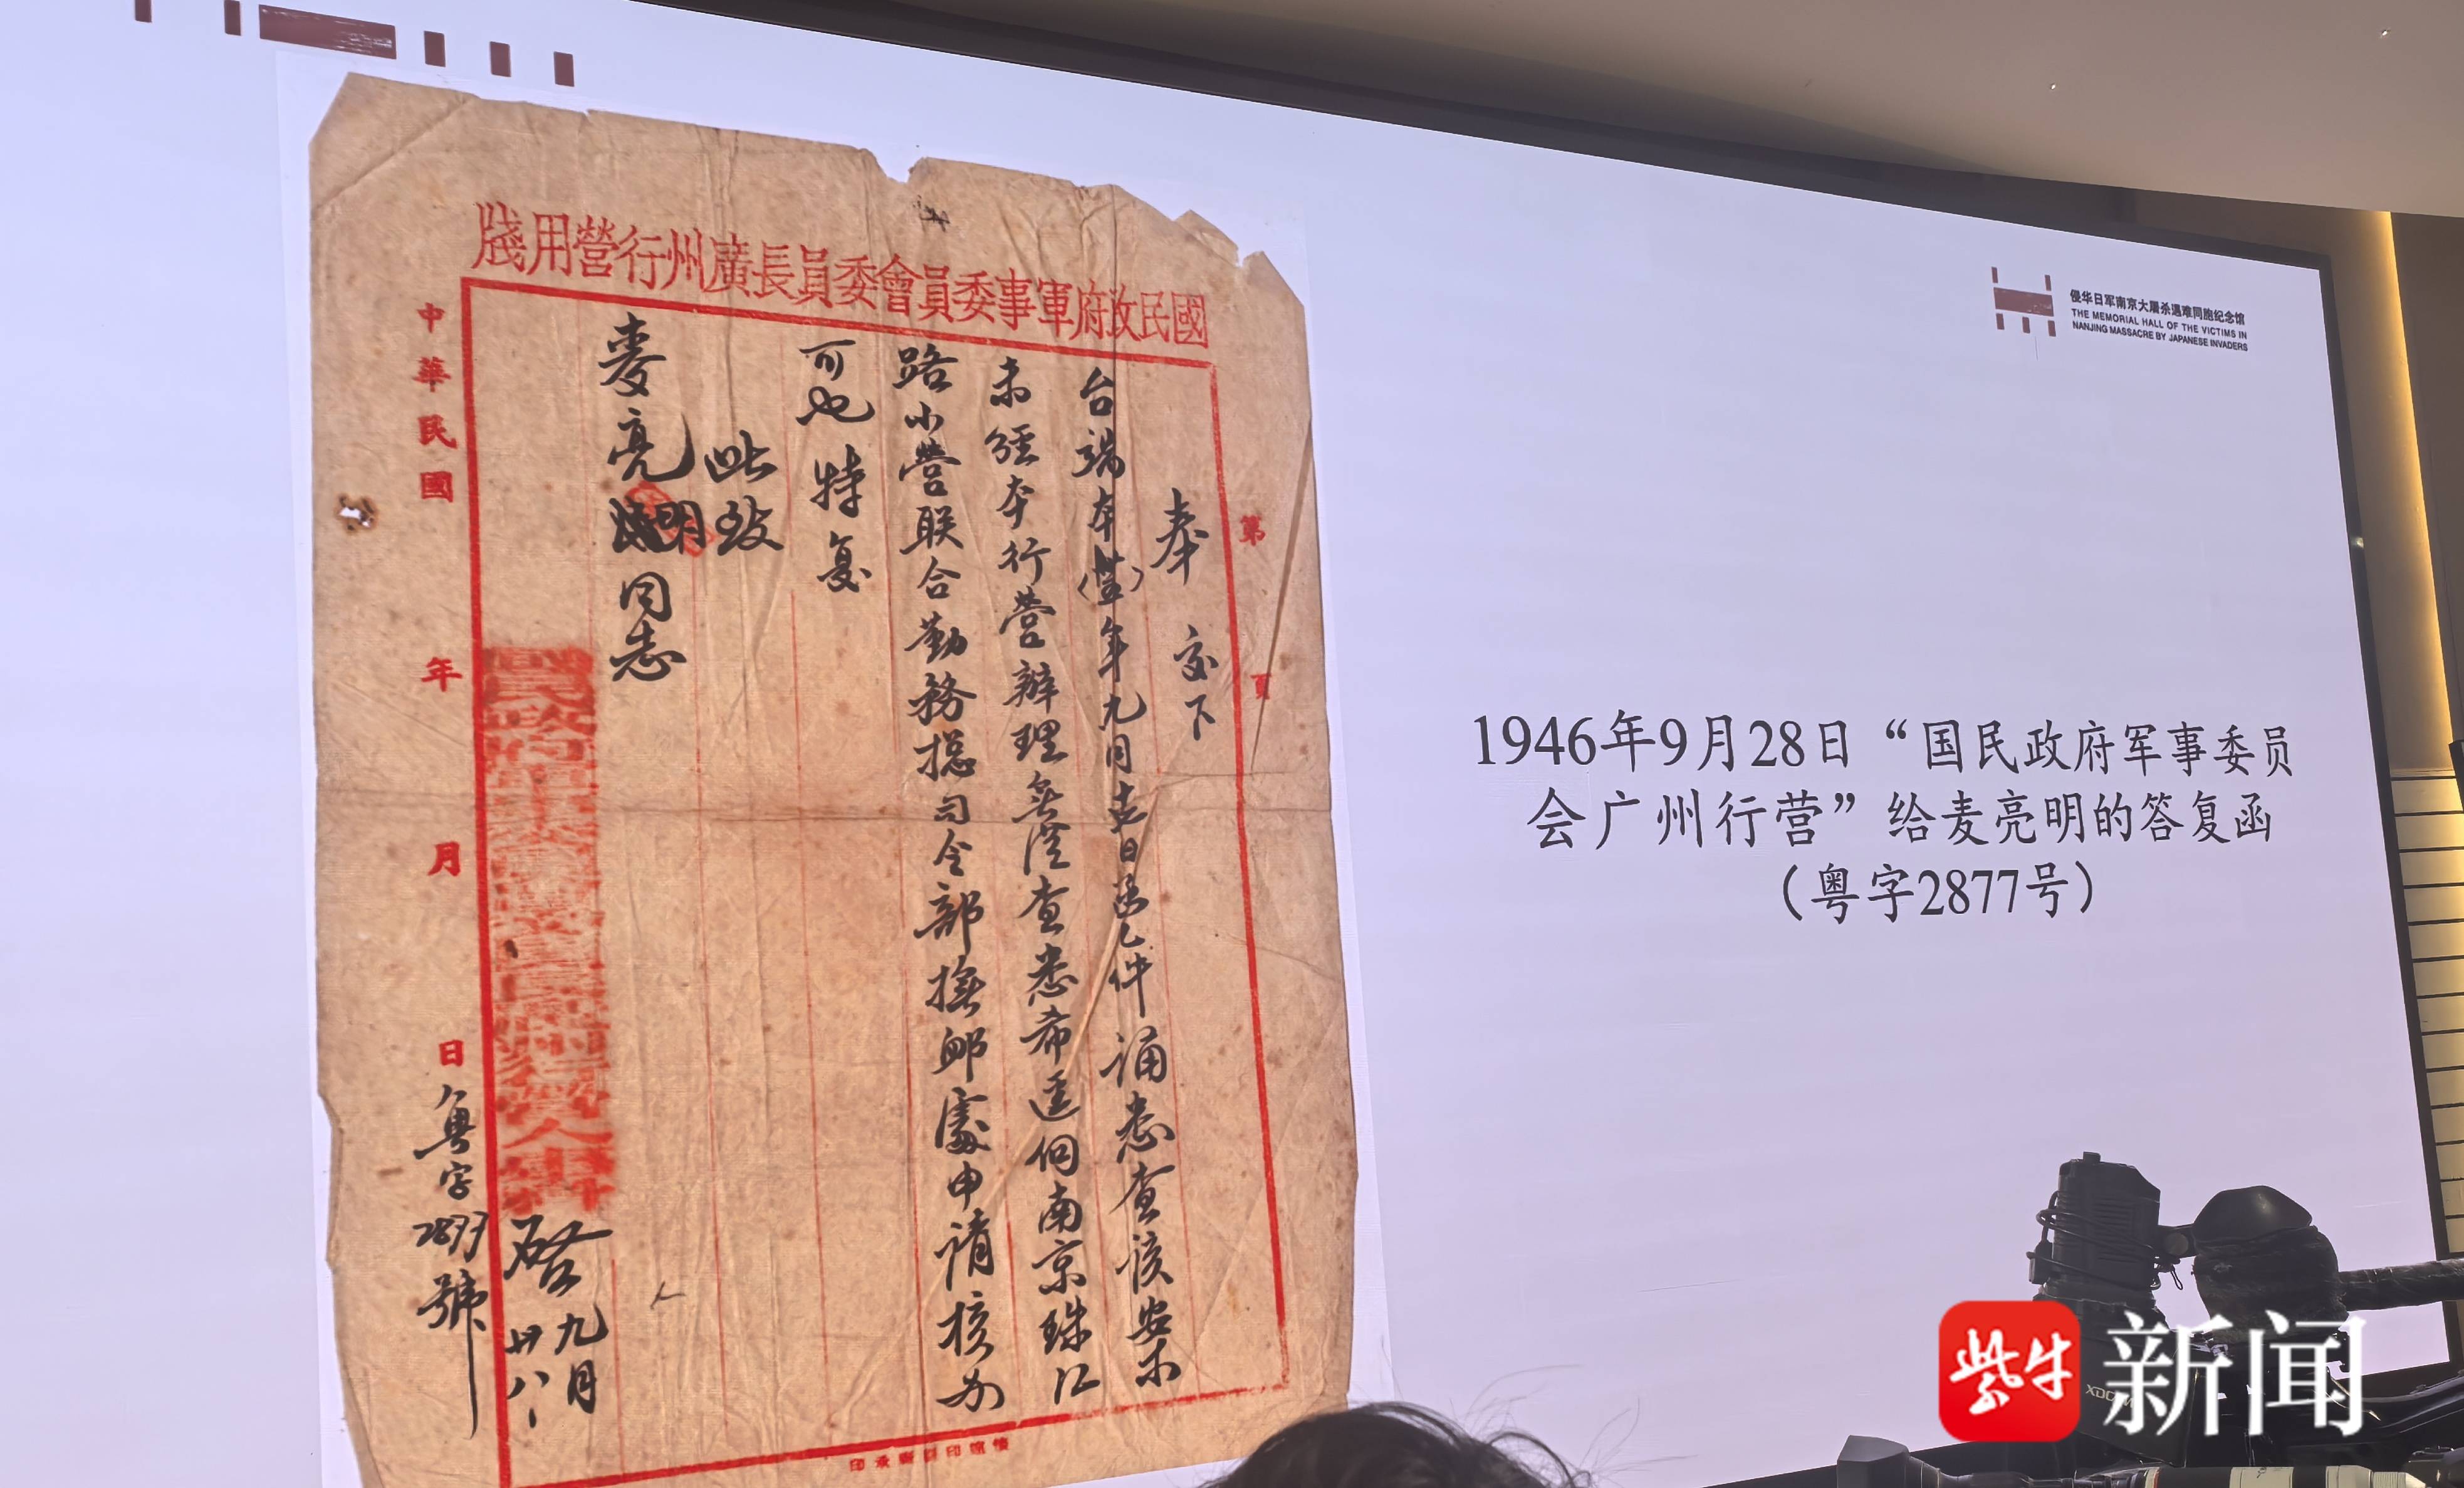 國民政府軍事委員會委員長廣州行營用牋
第 頁
奉 交下
台端本(豊)年九月十七日函乙件誦悉查該案不
未經本行營辦理無從查悉希逕向南京珠江
路小營联合勤務總司令部撫卹處申請核办
可也特复
此致
麥亮明同志
啓九月廿八
中華民國 年 月 日粵字2877號
侵华日军南京大屠杀遇难同胞纪念馆
THE MEMORIAL HALL OF THE VICTIMS IN
NANJING MASSACRE BY JAPANESE INVADERS
1946年9月28日“国民政府军事委员
会广州行营”给麦亮明的答复函
（粤字2877号）
紫牛新闻